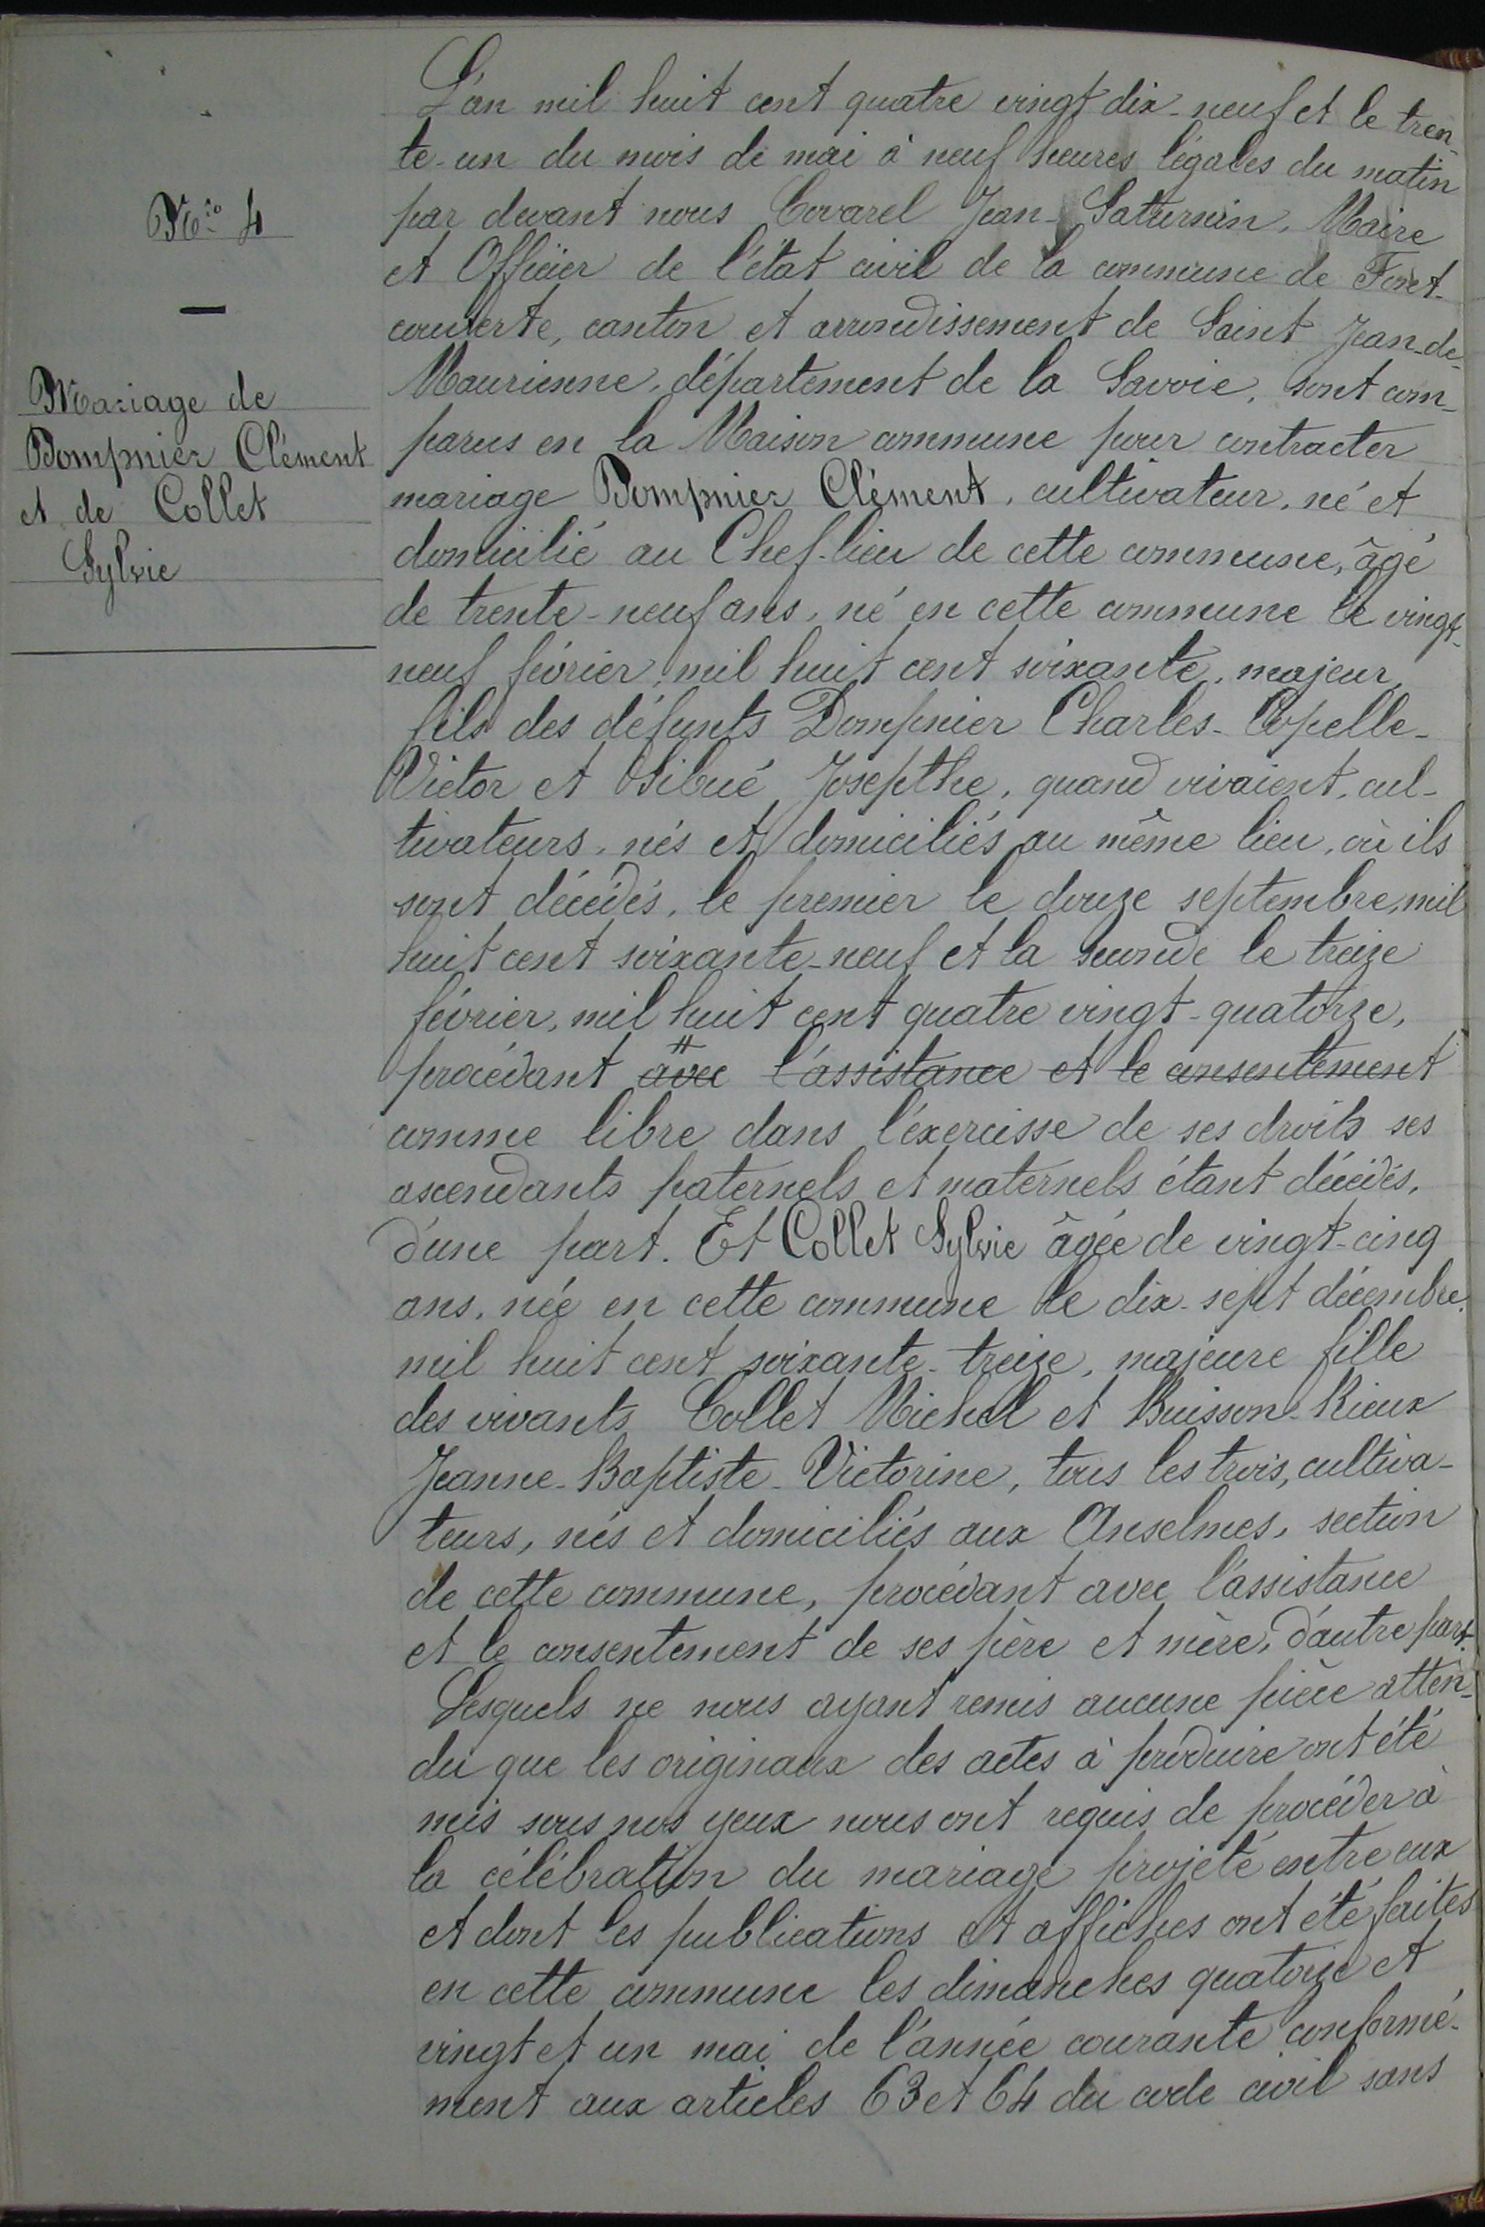 N.ro 4
Mariage de
Dompnier Clément
et de Collet
Sylvie
L'an mil huit cent quatre vingt dix-neuf et le tren-
te-un du mois de mai à neuf heures légales du matin
par devant nous Covarel Jean-Saturnin, Maire
et Officier de l'état civil de la commune de Font-
couverte, canton et arrondissement de Saint Jean-de-
Maurienne, département de la Savoie, sont com-
parus en la Maison commune pour contracter
mariage Dompnier Clément, cultivateur, né et
domicilié au Chef-lieu de cette commune, âgé
de trente-neuf ans, né en cette commune le vingt-
neuf février, mil huit cent soixante, majeur,
fils des défunts Dompnier Charles-Copelle-
Victor et Sibué Josepthe, quand vivaient, cul-
tivateurs, nés et domiciliés au même lieu, où ils
sont décédés, le premier le douze septembre, mil
huit cent soixante-neuf et la seconde le treize
février, mil huit cent quatre vingt-quatorze,
procédant avec l'assistance et le consentement
comme libre dans l'éxercisse de ses droits ses
ascendants paternels et maternels étant décédés,
d'une part. Et Collet Sylvie âgée de vingt-cinq
ans, née en cette commune le dix-sept décembre,
mil huit cent soixante-treize, majeure fille
des vivants Collet Michel et Buisson-Rieux
Jeanne-Baptiste-Victorine, tous les trois, cultiva-
teurs, nés et domiciliés aux Anselmes, section
de cette commune, procédant avec l'assistance
et le consentement de ses père et mère, d'autre part.
Lesquels ne nous ayant remis aucune pièce atten-
du que les originaux des actes à produire ont été
mis sous nos yeux nous ont requis de procéder à
la célébration du mariage projeté entre eux
et dont les publications et affiches ont été faites
en cette commune les dimanches quatorze et
vingt et un mai de l'année courante conformé-
ment aux articles 63 et 64 du code civil sans